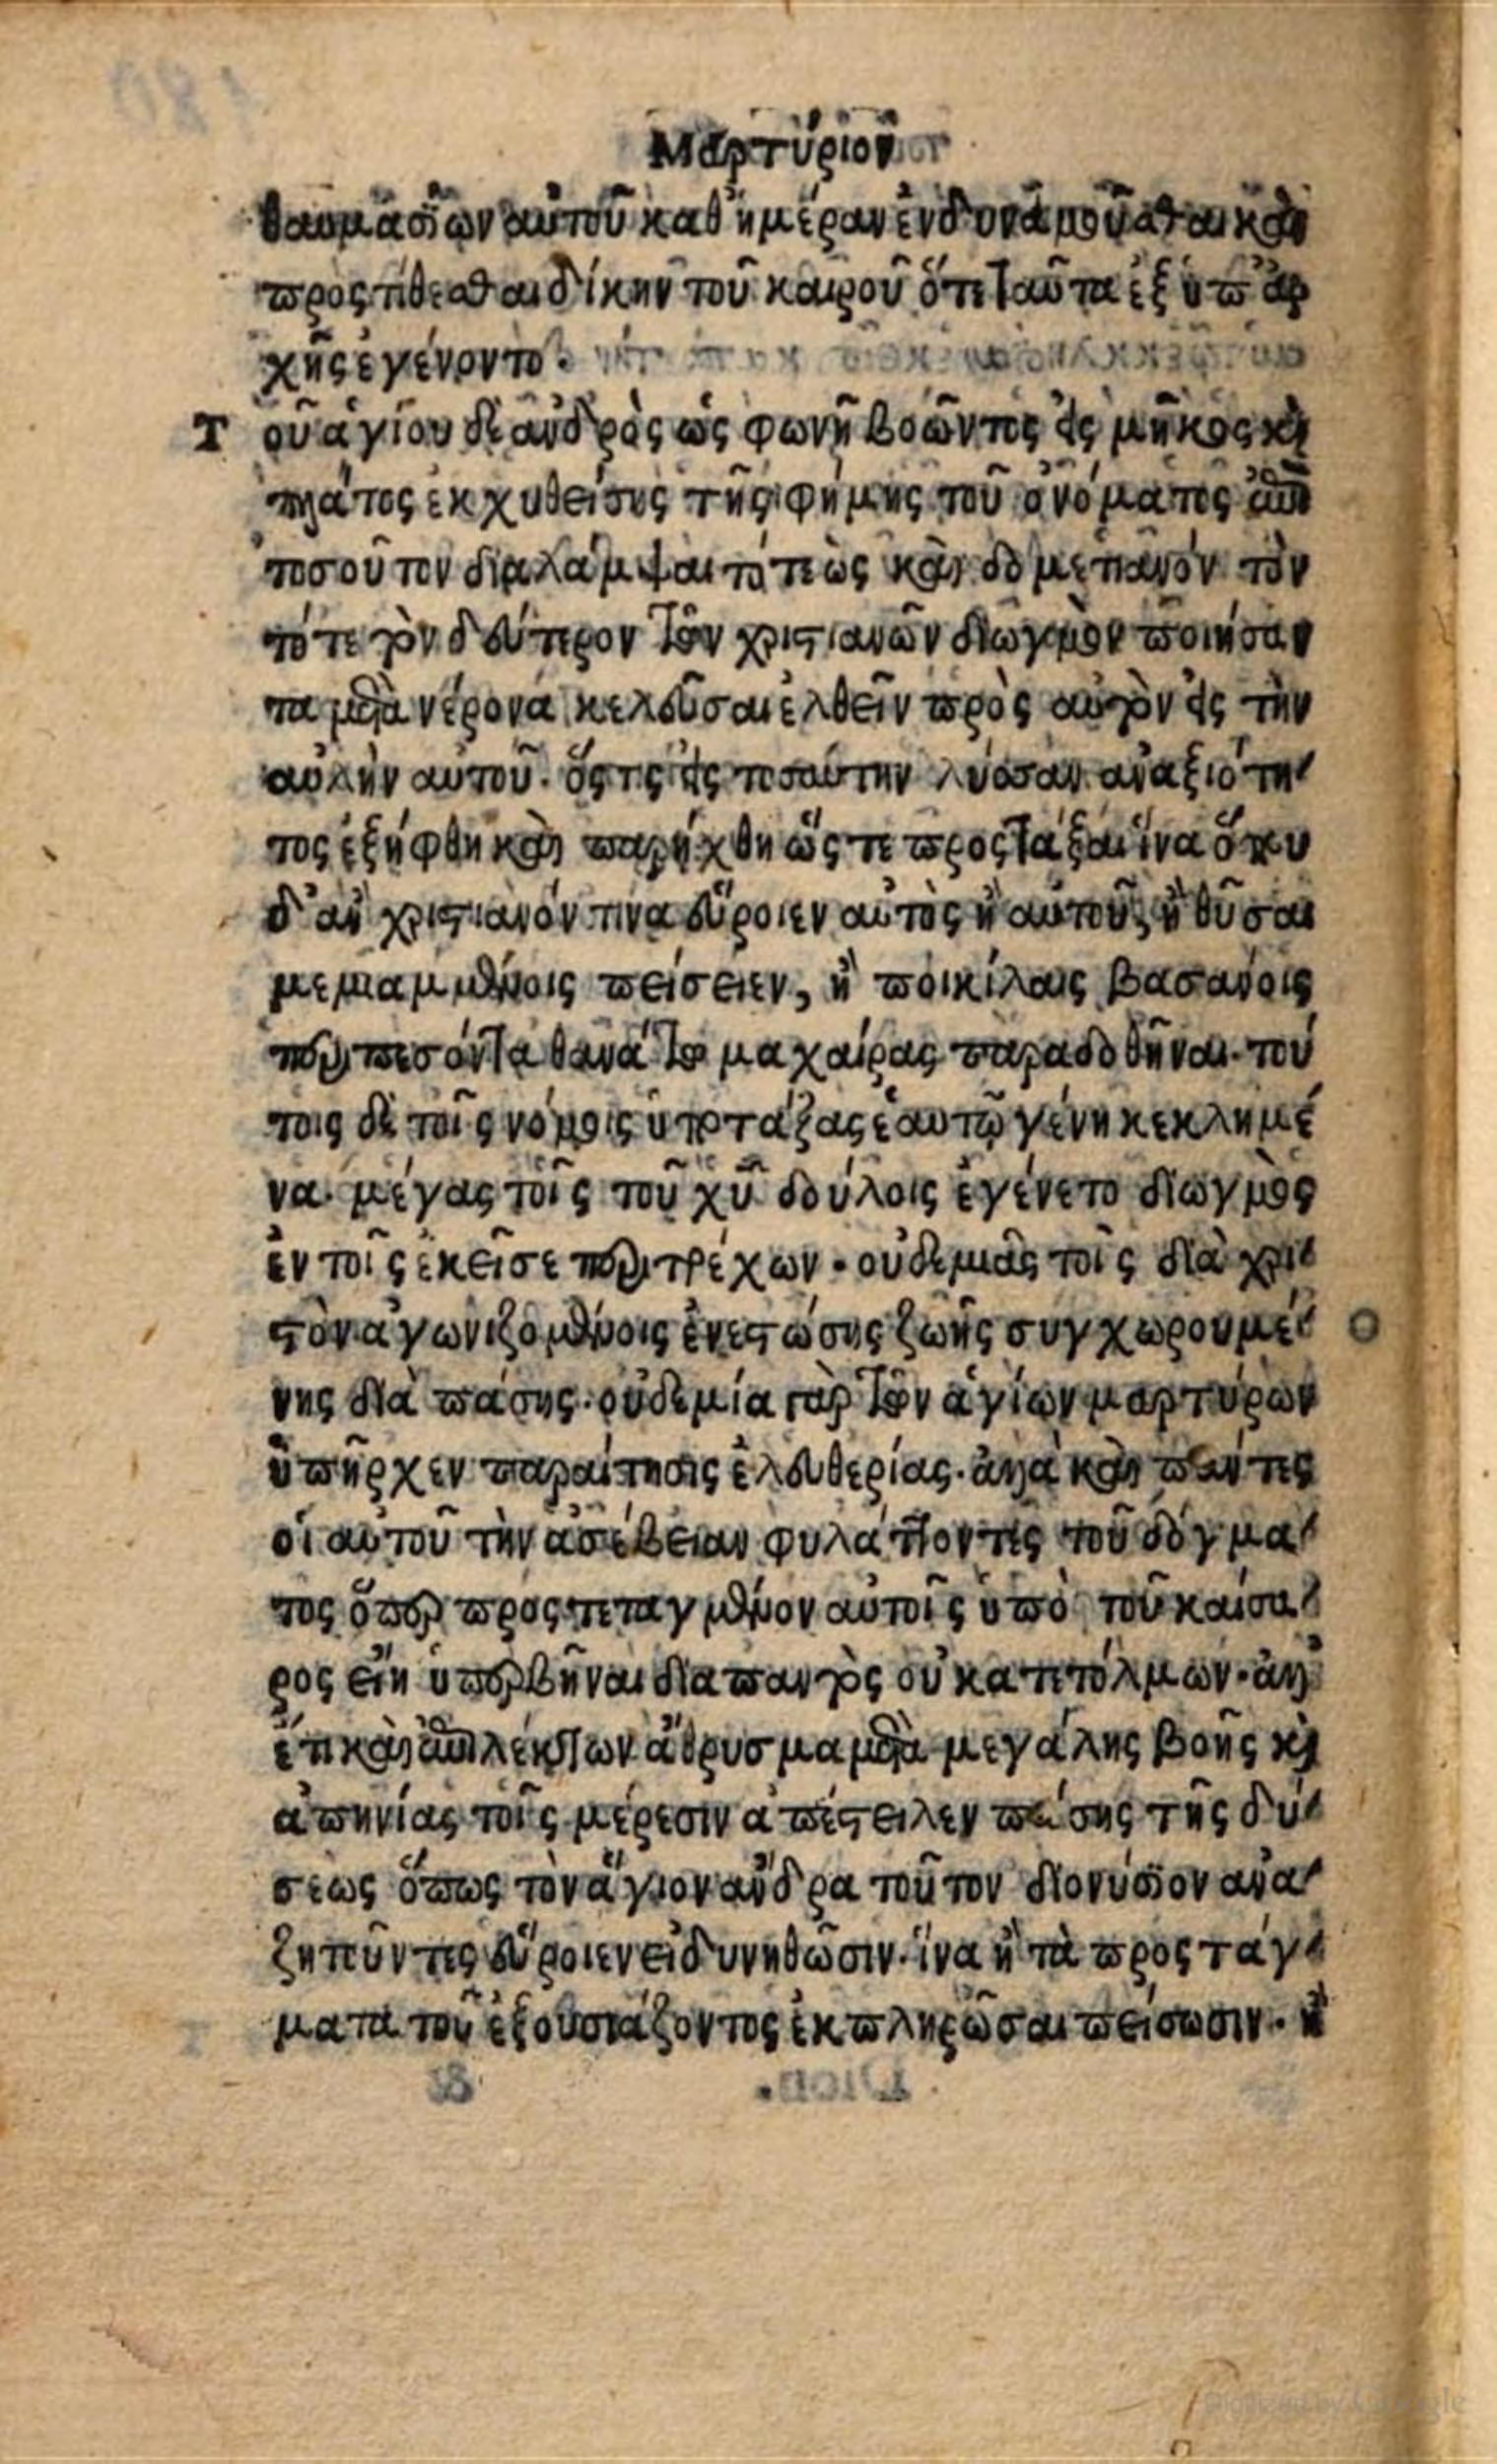 Μαρτύριον
θαυμασίων αὐτοῦ καθ' ἡμέραν ἐνδυναμοῦσθαι καὶ
προςτίθεσθαι δίκην τοῦ καιροῦ ὅτε ταῦτα ἐξ ὑπ' ἀρ
χῆς ἐγένοντο.
Τοῦ ἁγίου δὲ ἀνδρὸς ὡς φωνῇ βοῶντος εἰς μῆκος καὶ
πλάτος ἐκχυθείσης τῆς φήμης τοῦ ὀνόματος ἐπὶ
τοσοῦτον διαλάμψαι τότε ὡς καὶ δομετιανόν τὸν
τότε τὸν δεύτερον τῶν χριστιανῶν διωγμὸν ποιήσαν
τα μετὰ νέρονα κελεῦσαι ἐλθεῖν πρὸς αὐτὸν εἰς τὴν
αὐλὴν αὐτοῦ. ὅςτις εἰς τοσαύτην λύσσαν ἀναξιότη
τος ἐξήφθη καὶ παρήχθη ὥςτε προςτάξαι ἵνα ὅπου
δ' ἂν χριστιανόν τινα εὕροιεν αὐτὸς ἢ αὐτοῦ, ἢ θῦσαι
μεμιαμμένοις πείσειεν, ἢ ποικίλαις βασάνοις
περιπεσόντα θανάτω μαχαίρας παραδοθῆναι. τού
τοις δὲ τοῖς νόμοις ὑποτάξας ἑαυτῷ γένη κεκλημέ
να. μέγας τοῖς τοῦ χῦ δούλοις ἐγένετο διωγμὸς
ἐν τοῖς ἐκεῖσε περιτρέχων. οὐδεμιᾶς τοῖς διὰ χρι
στὸν ἀγωνιζομένοις ἐνεστώσης ζωῆς συγχωρουμέ
νης διὰ πάσης. οὐδεμία γὰρ τῶν ἁγίων μαρτύρων
ὑπῆρχεν παραίτησις ἐλευθερίας. ἀλλὰ καὶ πάντες
οἱ αὐτοῦ τὴν ἀσέβειαν φυλάττοντες τοῦ δόγμα
τος ὅπερ προςτεταγμένον αὐτοῖς ὑπὸ τοῦ καίσα
ρος εἴη ὑπερβῆναι διαπαντὸς οὐ κατετόλμων. ἀλλ'
ἔτι καὶ ἐπιλέκτων ἄθρυσμα μετὰ μεγάλης βοῆς καὶ
ἀπηνίας τοῖς μέρεσιν ἀπέστειλεν πάσης τῆς δύ
σεως ὅπως τὸν ἅγιον ἄνδρα τοῦτον διονύσιον ἀνα
ζητοῦντες εὕροιεν εἰ δυνηθῶσιν. ἵνα ἢ τὰ προςτάγ
ματα τοῦ ἐξουσιάζοντος ἐκπληρῶσαι πείσωσιν. ἢ